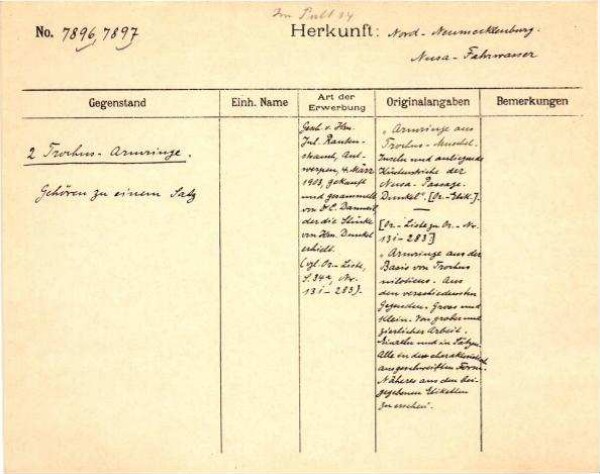 Im Pult 14
No. 7896, 7897
Herkunft: Nord-Neumecklenburg.
Nusa-Fahrwasser
Gegenstand
Einh. Name
Art der
Erwerbung
Originalangaben
Bemerkungen
2 Trochus-Armringe.
Gehören zu einem Satz
Gesch. v. Hrn.
Jul. Rauten-
strauch, Ant-
werpen, 4. März
1903, gekauft
und gesammelt
von Dr. C. Danneil
der die Stücke
von Hrn. Dunkel
erhielt.
(vgl. Or-Liste,
S. 34a, No.
13i-283).
„Armringe aus
Trochus-Muschel.
Inseln und anliegende
Küstenstriche der
Nusa-Passage.
Dunkel". [Or-Etik.].
[Or-Liste zu Or-No.
13i-283]
„Armringe aus der
Basis von Trochus
niloticus. Aus
den verschiedensten
Gegenden. Gross und
Klein. Von grober und
zierlicher Arbeit.
Einzeln und in Sätzen.
Alle in der charakteristisch
ausgeschweiften Form.
Näheres aus den bei-
gegebenen Etiketten
zu ersehen".